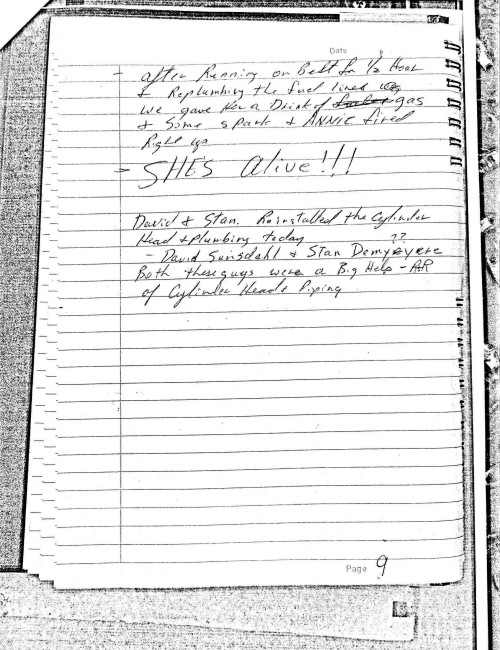 Date
- after Running on Belt for 1/2 Hour
& Replumbing the fuel lines
we gave Her a Drink of gas
& Some spark & ANNIE fired
Right up
- SHE'S alive!!!
David & Stan. Reinstalled the Cylinder
Head & plumbing today
??
- David Sunsdahl & Stan Demyeyere
Both these guys were a Big Help - AR
of Cylinder Heads Piping
Page 9